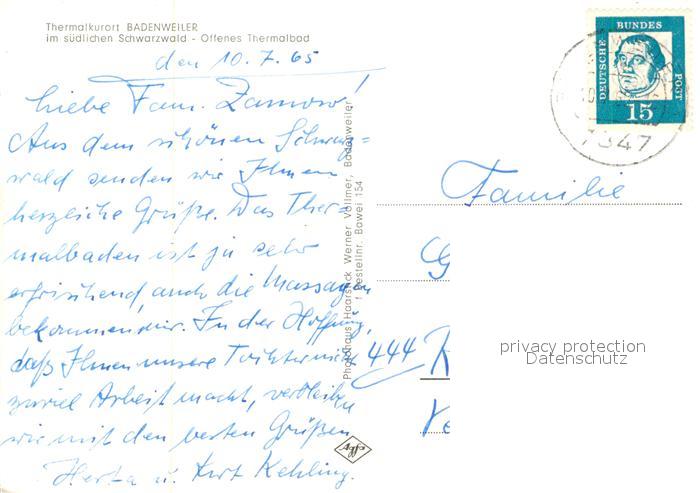 Thermalkurort BADENWEILER
im südlichen Schwarzwald - Offenes Thermalbad
den 10.7.65
Liebe Fam. Zamow!
Aus dem schönen Schwarz=
wald senden wir Ihnen
herzliche Grüße. Das Ther-
malbaden ist ja sehr
erfrischend, auch die Massagen
bekommen mir. In der Hoffnung,
daß Ihnen unsere Tochter nicht
zuviel Arbeit macht, verbleiben
wir mit den besten Grüßen
Herta u. Kurt Kehling.
Photohaus Haarstick Werner Vollmer, Badenweiler
Bestellnr. Bawei 154
Agfa
DEUTSCHE BUNDES POST
15
7847
Familie
G
444 K
privacy protection
Datenschutz